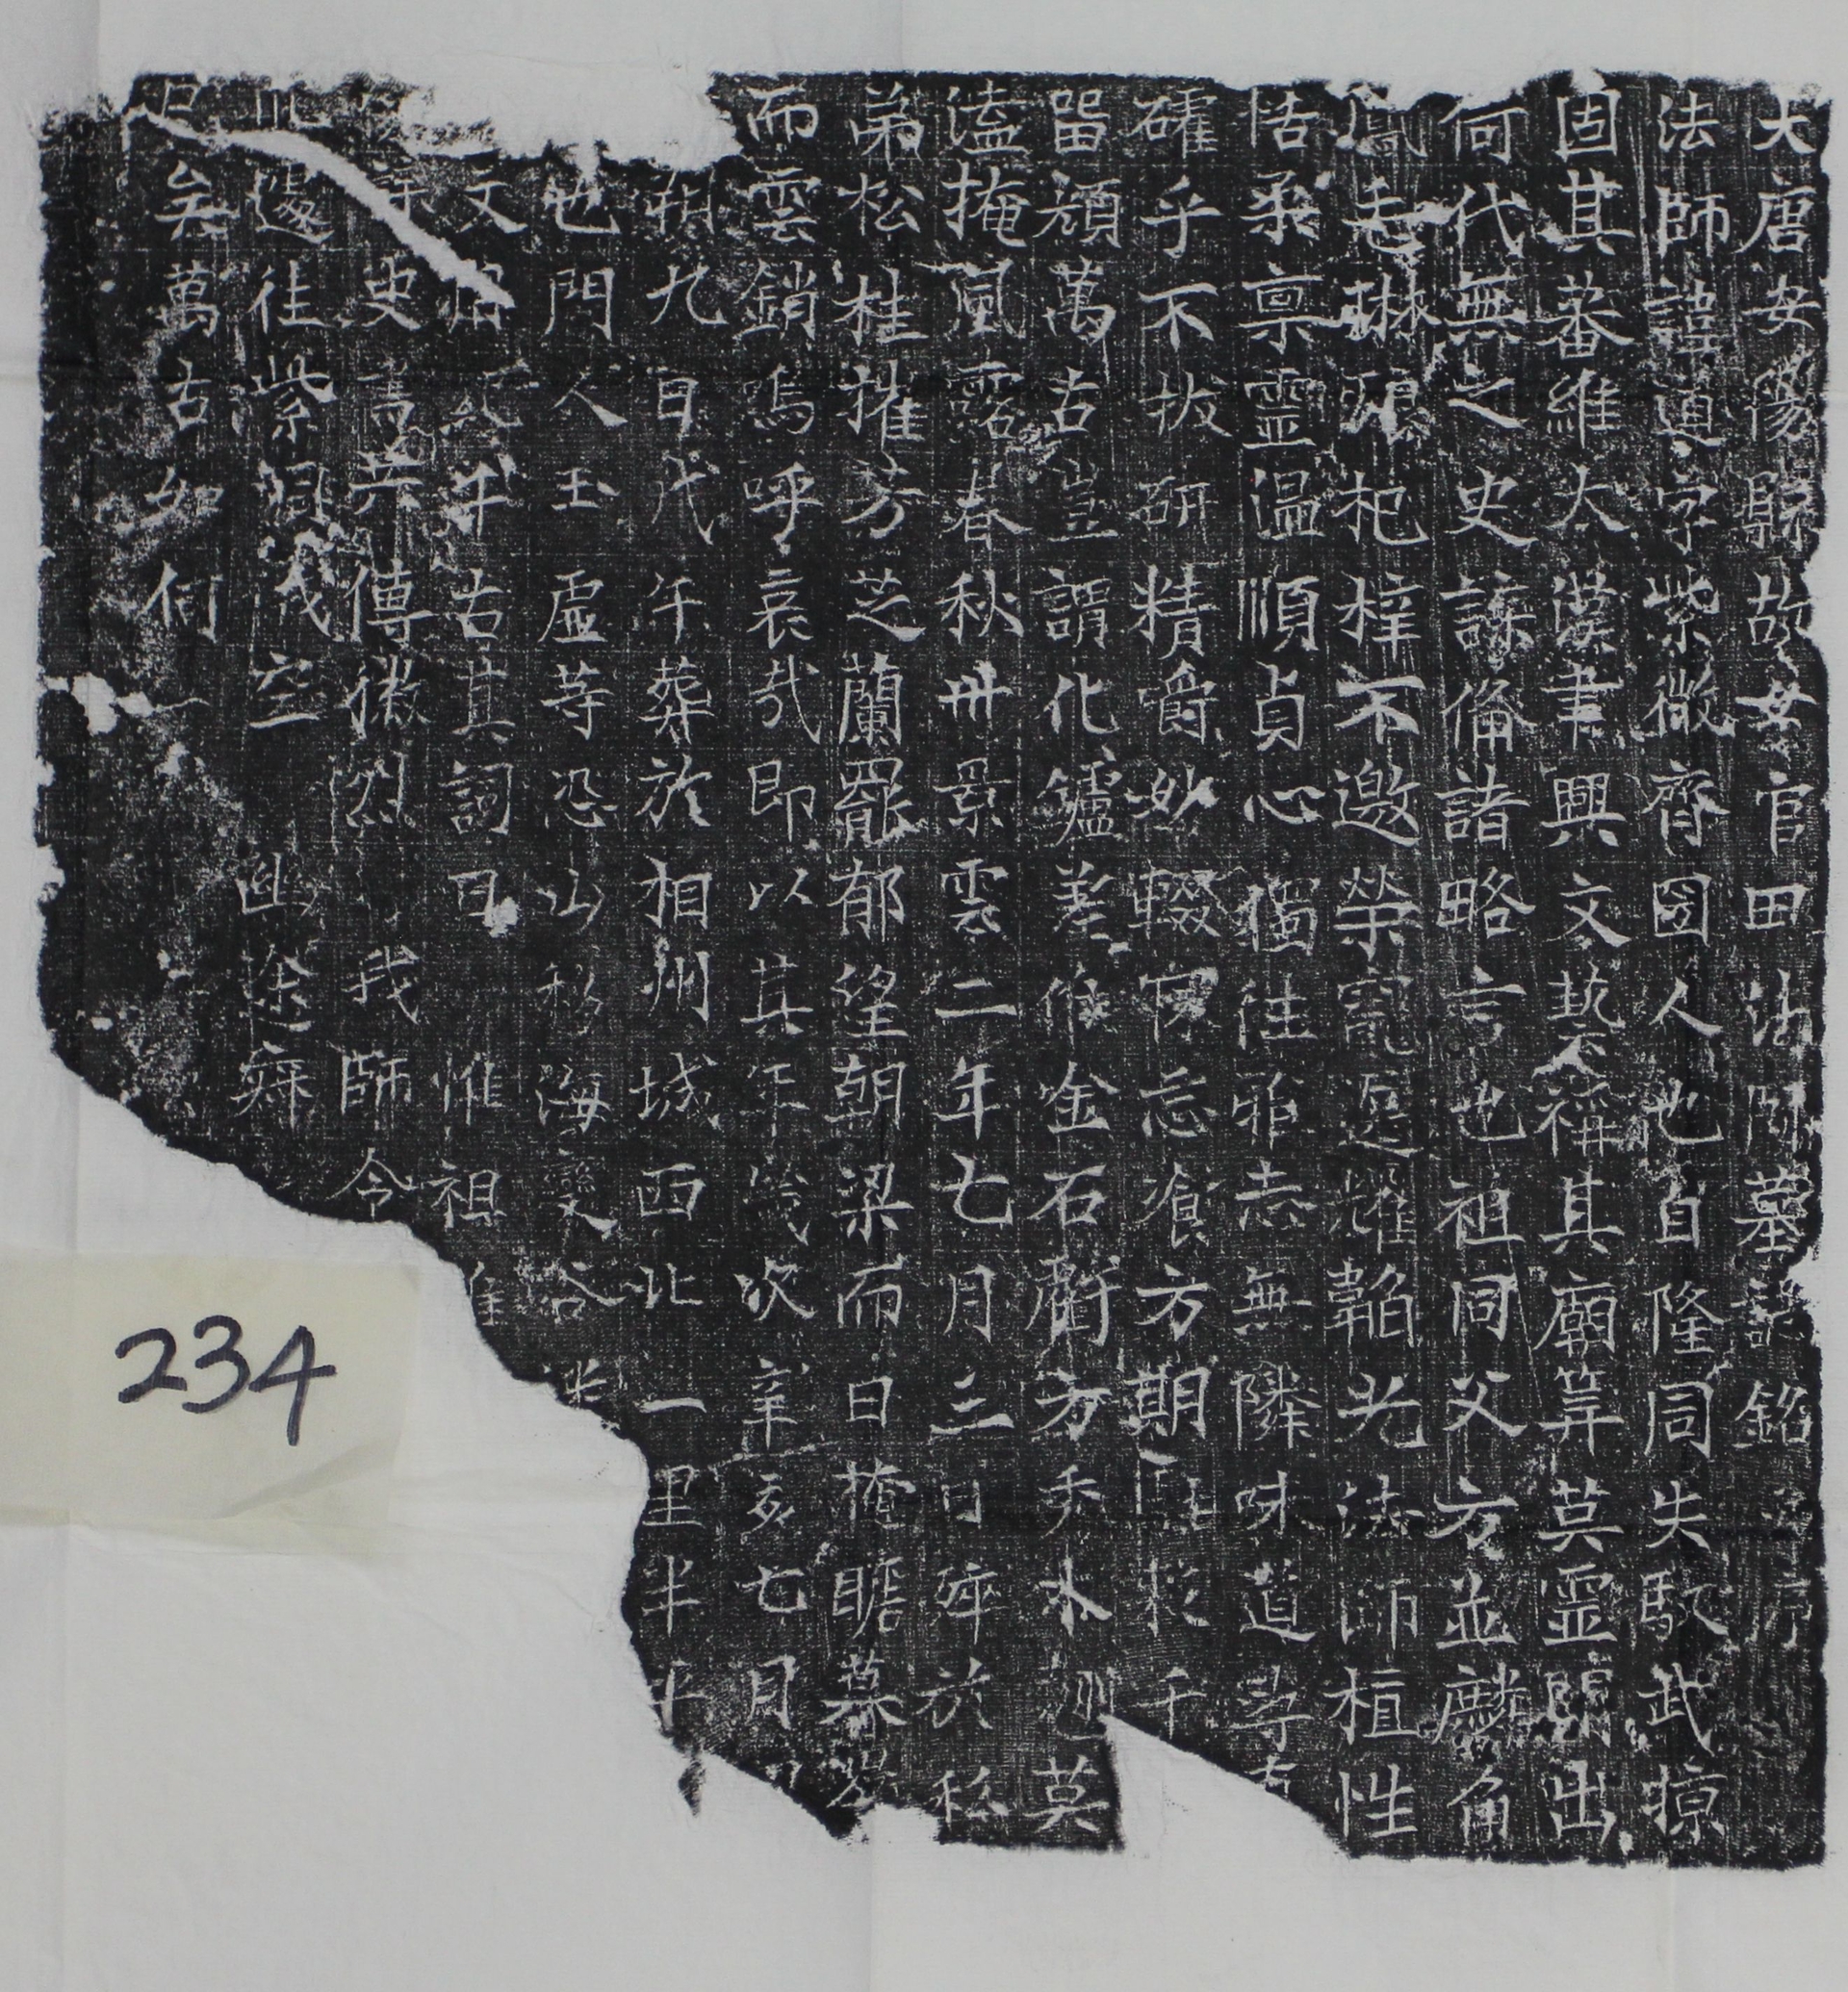 大唐安陽縣故女官田法師墓誌銘并序
法師諱道字紫微齊國人也自隆同失馭武掠
固其蕃維太漢聿興文藝稱其廟筭莫靈閒出
何代無之史諜備諸略言也祖同父方並麟角
毛琳琅杞梓不邀榮寵匿耀韜光法師植性
恬柔稟靈溫順貞心獨往雅志無隣味道
確乎不拔研精爵妙輟寢忘飡方期千
留頑萬古豈謂化鑪差假金石虧方秀木莫
溘掩風露春秋卌景雲二年七月三日瘁於私
第松桂摧芳芝蘭罷郁望朝梁而日掩瞻墓
而雲銷嗚呼哀哉即以其年歲次辛亥七月
朔九日戊午葬於相州城西北一里半平
也門人王虛等恐山移海變谷
文千古其詞曰惟祖
史書六傳徽烈我師令
邊往紫洞幽途寐
矣萬古如何
234